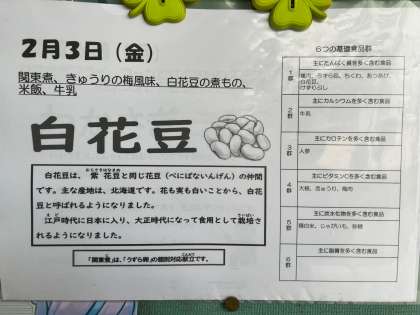 2月3日（金）
関東煮、きゅうりの梅風味、白花豆の煮もの、
米飯、牛乳
白花豆
白花豆は、紫花豆と同じ花豆（べにばないんげん）の仲間
です。主な産地は、北海道です。花も実も白いことから、白花
豆と呼ばれるようになりました。
江戸時代に日本に入り、大正時代になって食用として栽培さ
れるようになりました。
「関東煮」は、「うずら卵」の個別対応献立です。
6つの基礎食品群
1群
主にたんぱく質を多く含む食品
鶏肉、うずら卵、ちくわ、あつあげ、
白花豆、
けずりぶし
2群
主にカルシウムを多く含む食品
牛乳
3群
主にカロテンを多く含む食品
人参
4群
主にビタミンCを多く含む食品
大根、きゅうり、梅肉
5群
主に炭水化物を多く含む食品
精白米、じゃがいも、砂糖
6群
主に脂質を多く含む食品